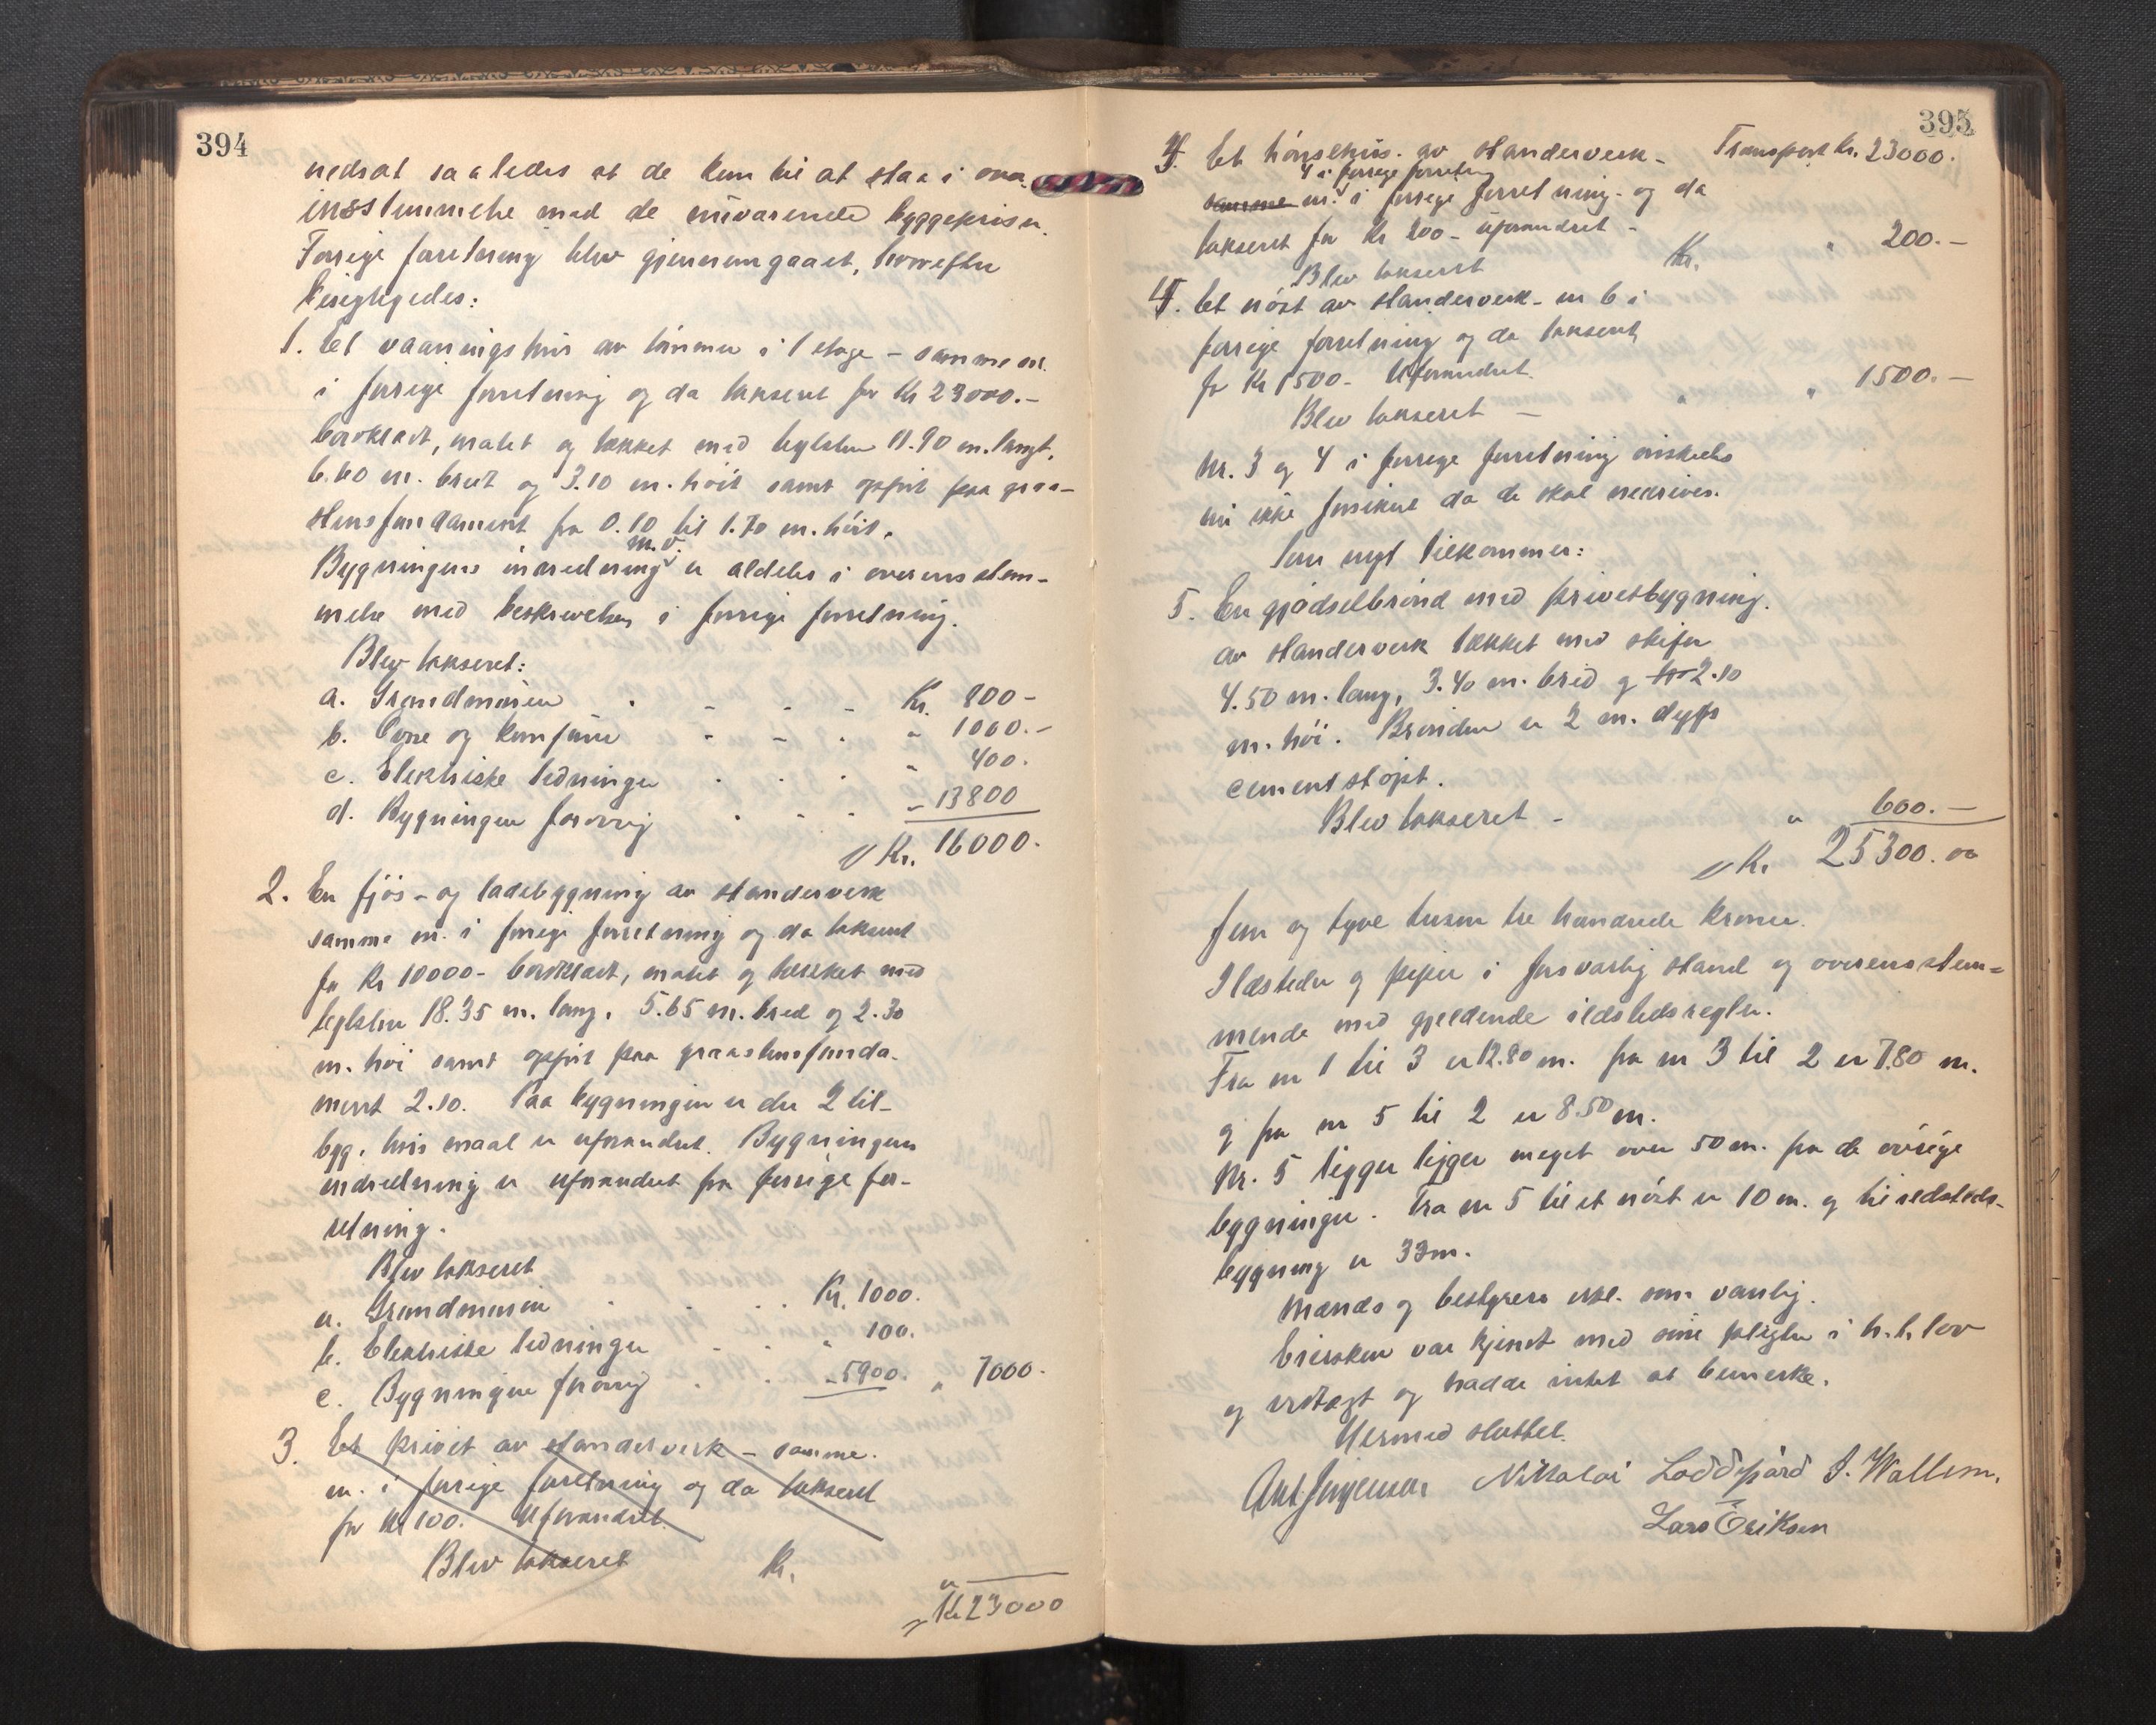 394
nedsat saaledes at de kun til at staa i over-
insstemmelse med de nuværende byggepriser.
Forrige forretning blev gjennemgaaet, hvorefter
besigtigedes:
1. Et vaaningshus av tømmer i 1 etage - samme nr.
i forrige forretning og da takseret for Kr 23000.-
bordklædt, malet og tækket med teglsten 11.90 m. langt,
6.60 m. bredt og 3.10 m. høit samt opført paa graa-
stensfundament fra 0.10 til 1.70 m. høit.
Bygningens inredning m.v. er aldeles i overensstem-
melse med beskrivelsen i forrige forretning.
Blev takseret:
a. Grundmuren - - - - Kr. 800 -
b. Ovne og komfurer - - - " 1000.-
c. Elektriske ledninger - - - " 400.
d. Bygningen forøvrig - - - " 13800
Kr. 16000.
2. En fjøs- og ladebygning av stenderverk
samme nr. i forrige forretning og da takseret
for Kr 10000- bordklædt, malet og tækket med
teglsten 18.35 m. lang, 5.65 m. bred og 2.30
m. høi samt opført paa graastensfunda-
ment 2.10. Paa bygningen er der 2 til-
byg, hvis maal er uforandret. Bygningens
indredning er uforandret fra forrige for-
retning.
Blev takseret
a. Grundmuren - - - Kr. 1000.
b. Elektriske ledninger - - - " 100.
c. Bygningen forøvrig - - - 5900. " 7000.
3. Et privet av stenderverk - samme
nr. i forrige forretning og da takseret
for Kr 100. Uforandret.
Blev takseret Kr.
"
Kr 23000
395
Transport Kr. 23000.
3. Et hønsehus av stenderverk -
4 i forrige forretning
samme nr. i forrige forretning - og da
takseret for Kr 200 - uforandret -
Blev takseret Kr. " 200.-
4. Et nøst av stenderverk - nr 6 i
forrige forretning og da takseret
for Kr 1500- Uforandret.
Blev takseret - " " 1500.-
Nr. 3 og 4 i forrige forretning ønskedes
nu ikke forsikret da de skal nedrives.
Som nyt tilkommer:
5. En gjødselbrønd med privetbygning.
av stenderverk tækket med skifer
4.50 m. lang, 3.40 m. bred og 2.10
m. høi. Brønden er 2 m. dyp
cementstøpt.
Blev takseret - " 600.-
Kr 25300. 00
Fem og tyve tusen tre hundrede kroner.
Ildsteder og piper i forsvarlig stand og overensstem-
mende med gjeldende ildstedsregler.
Fra nr 1 til 3 er 12.80 m. fra nr 3 til 2 er 7.80 m.
og fra nr 5 til 2 er 8.50 m.
Nr. 5 ligger ligger meget over 50 m. fra de øvrige
bygninger. Fra nr 5 til et nøst er 10 m. og til ildsteds-
bygning er 33 m.
Mænds og bestyrers erkl. som vanlig.
Eiersken var kjendt med sine pligter i h. t. lov
og vedtægt og hadde intet at bemerke.
Hermed sluttet.
Ant Jørgensen Nikolai Loddgård J. Wallem.
Lars Eriksen